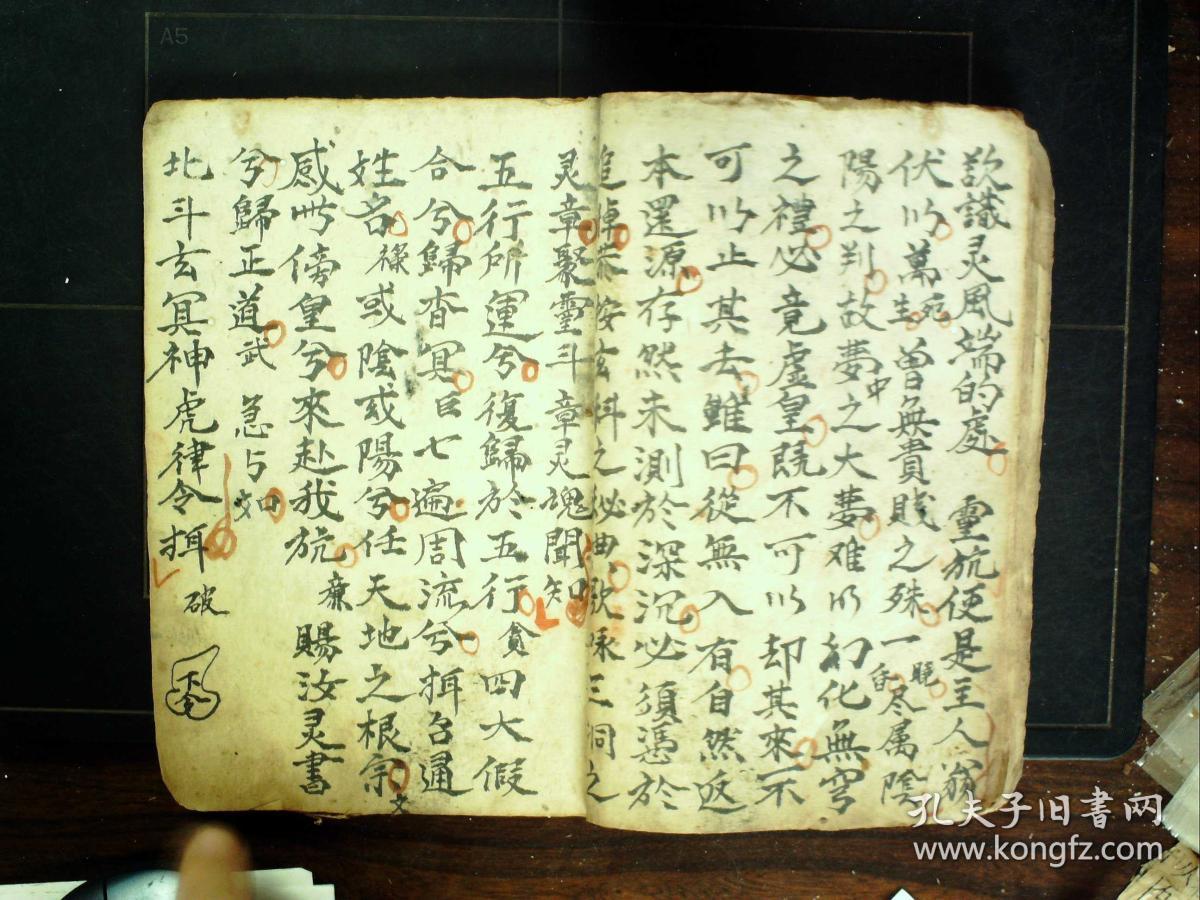 欤識灵風端的處 靈旒便是主人翁
伏以萬生死曽無貴賎之殊一晝晚尽属陰
陽之判故夢中之大夢难以幻化無穹
之禮必竟虚皇既不可以却其來不
可以止其去雖曰從無入有自然返
本還源存然未測於深沉必須憑於
追悼恭按玄科之秘典歌咏三洞之
灵章聚靈斗章灵魂聞知
五行所運兮復歸於五行貪四大假
合兮歸杳冥巨七遍周流兮揖召通
姓名祿或陰或陽兮任天地之根宗文
感此傍皇兮來赴我旒廉賜汝灵書
兮歸正道武急急如
北斗玄冥神虎律令揖破
A5
孔夫子旧書网
www.kongfz.com